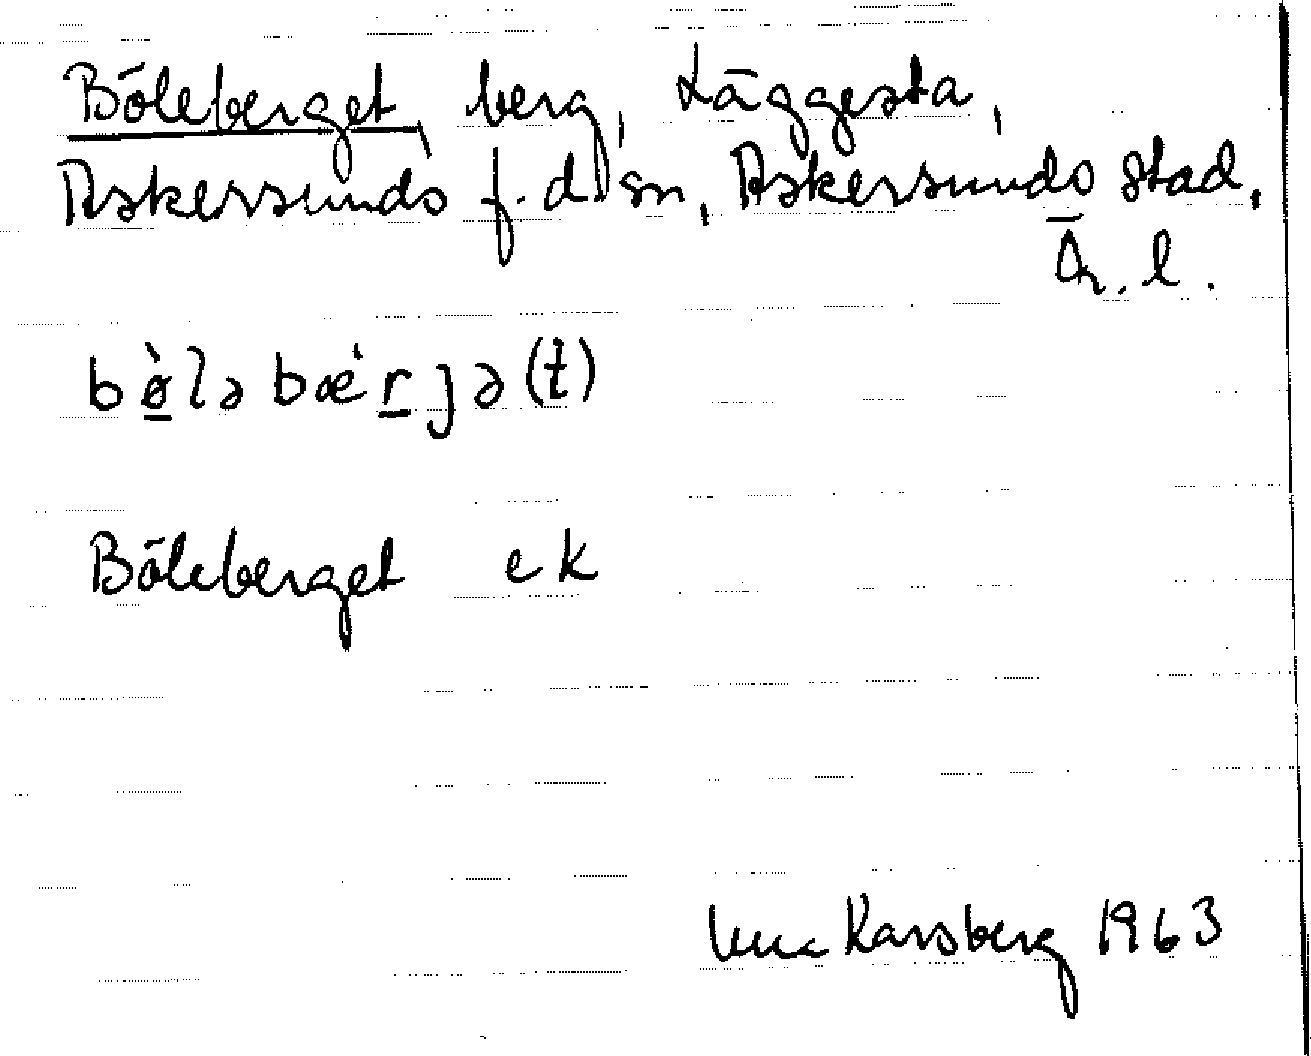 Böleberget, berg, Läggesta,
Askersunds f.d. sn, Askersunds stad,
Ör. l.
bø̀lǝbæ̍rjǝ(t)
Böleberget ek
Karsberg 1963